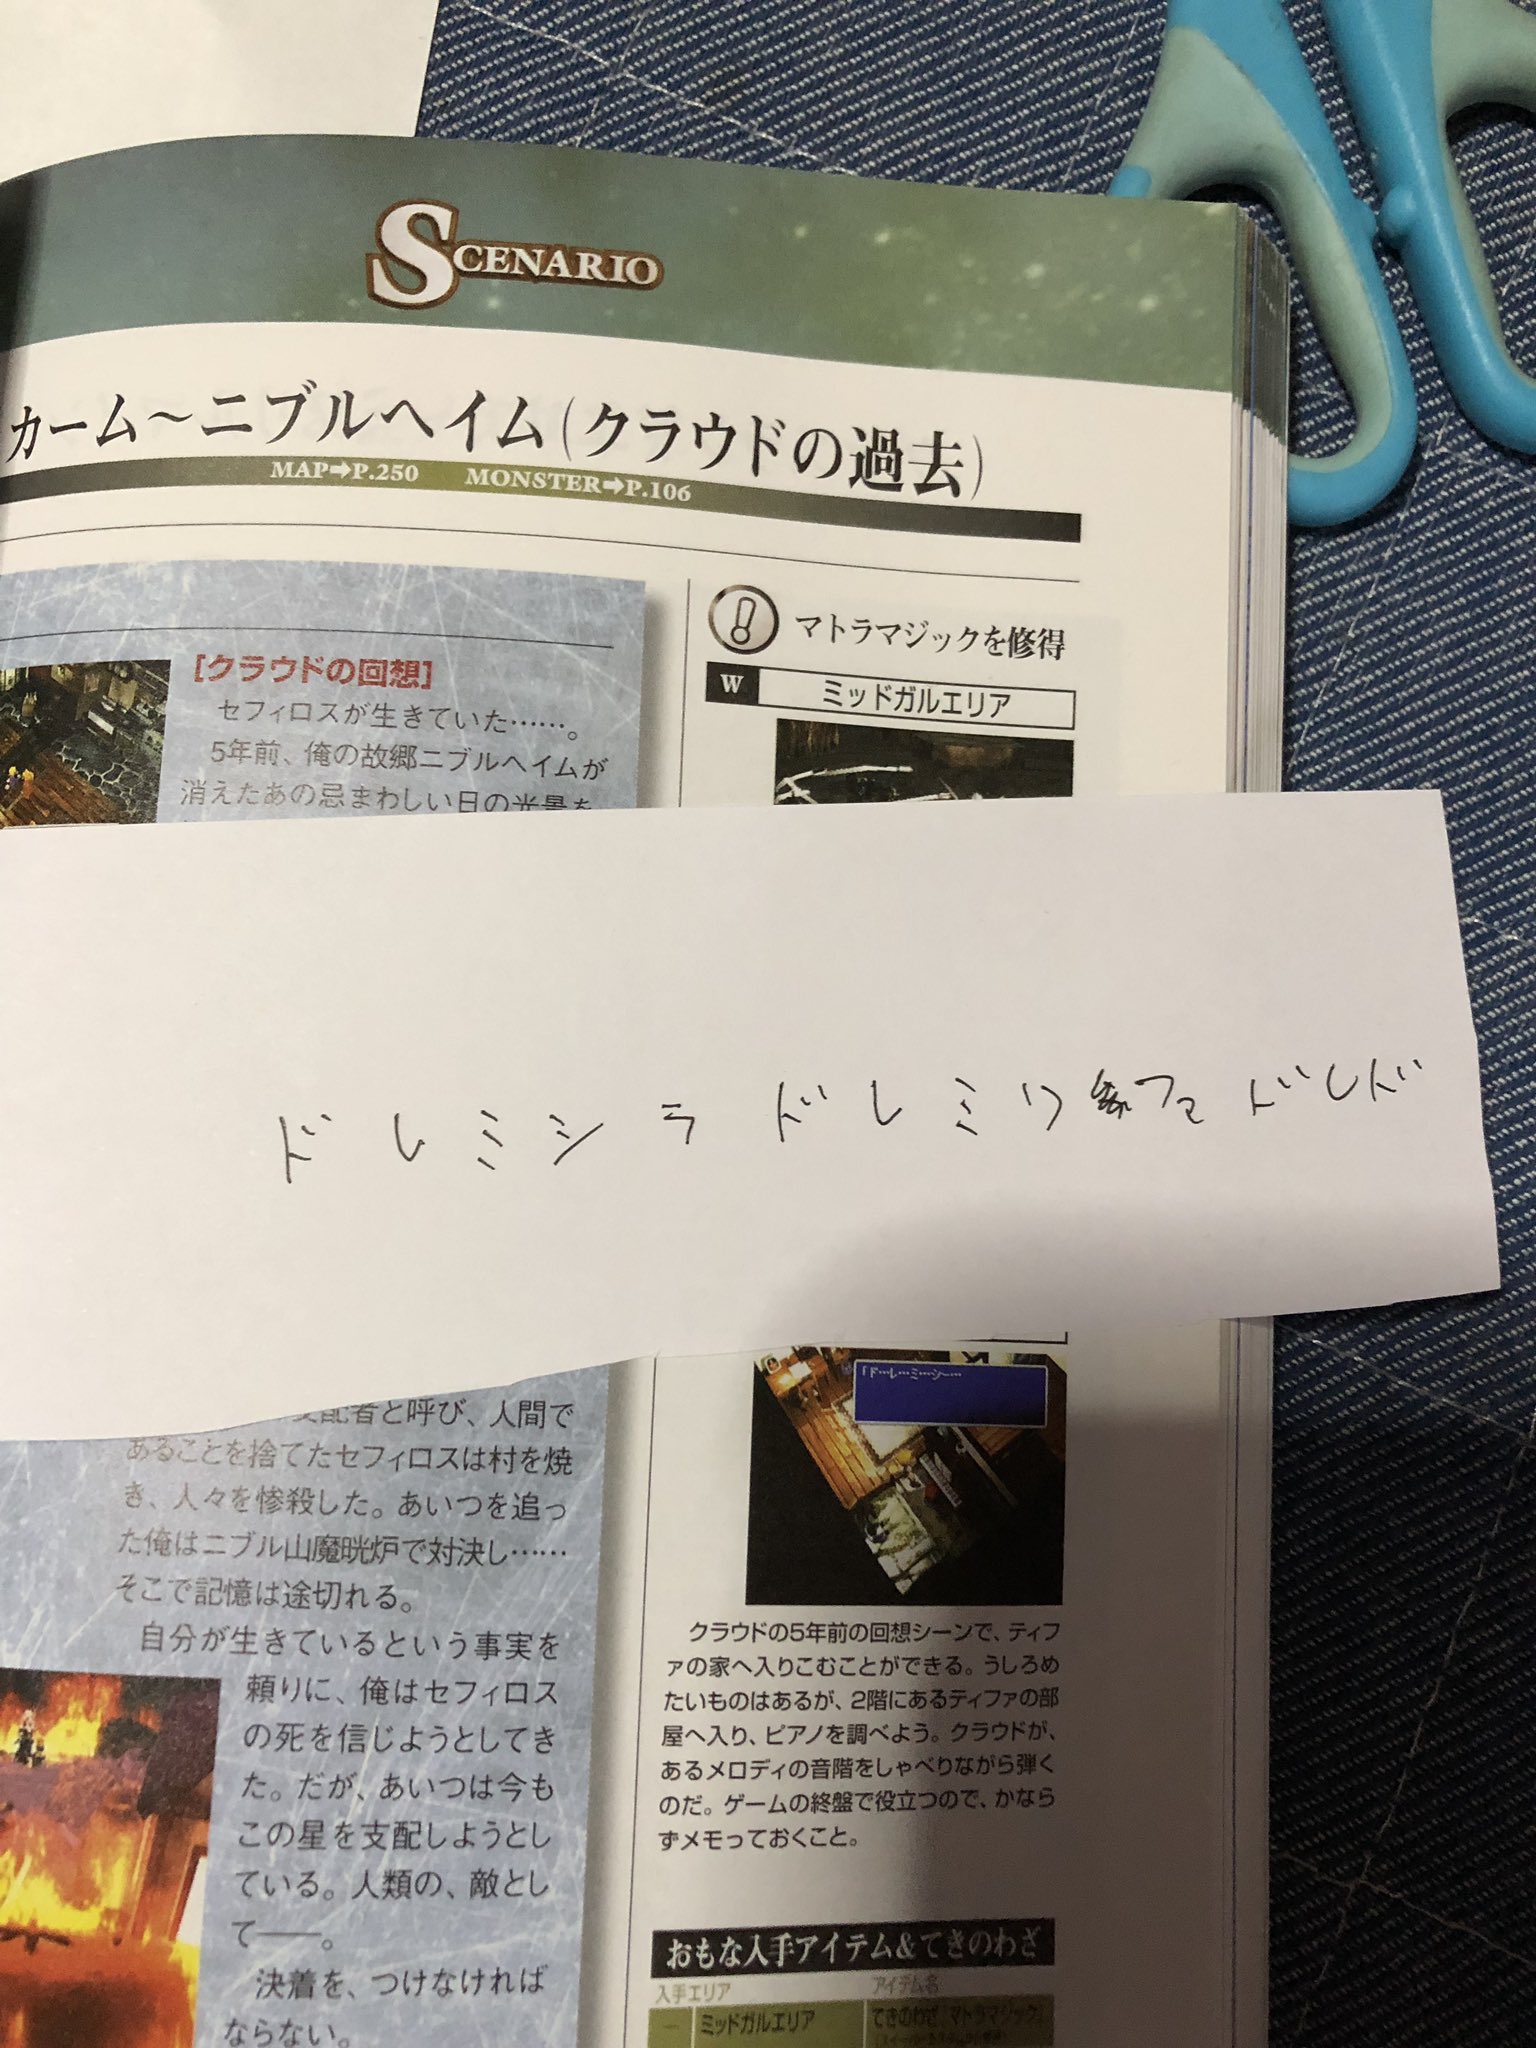 SCENARIO
カーム～ニブルヘイム(クラウドの過去)
MAP➡P.250 MONSTER➡P.106
[クラウドの回想]
セフィロスが生きていた……。
5年前、俺の故郷ニブルヘイムが
消えたあの忌まわしい日の光景を
マトラマジックを修得
W ミッドガルエリア
ドレミシラドレミソファドレド
支配者と呼び、人間で
あることを捨てたセフィロスは村を焼
き、人々を惨殺した。あいつを追っ
た俺はニブル山魔晄炉で対決し……
そこで記憶は途切れる。
自分が生きているという事実を
頼りに、俺はセフィロス
の死を信じようとしてき
た。だが、あいつは今も
この星を支配しようとし
ている。人類の、敵とし
て――。
決着を、つけなければ
ならない。
「ド…レ…ミ…シ…
クラウドの5年前の回想シーンで、ティフ
ァの家へ入りこむことができる。うしろめ
たいものはあるが、2階にあるティファの部
屋へ入り、ピアノを調べよう。クラウドが、
あるメロディの音階をしゃべりながら弾く
のだ。ゲームの終盤で役立つので、かなら
ずメモっておくこと。
おもな入手アイテム&てきのわざ
入手エリア アイテム名
ミッドガルエリア てきのわざ『マトラマジック』